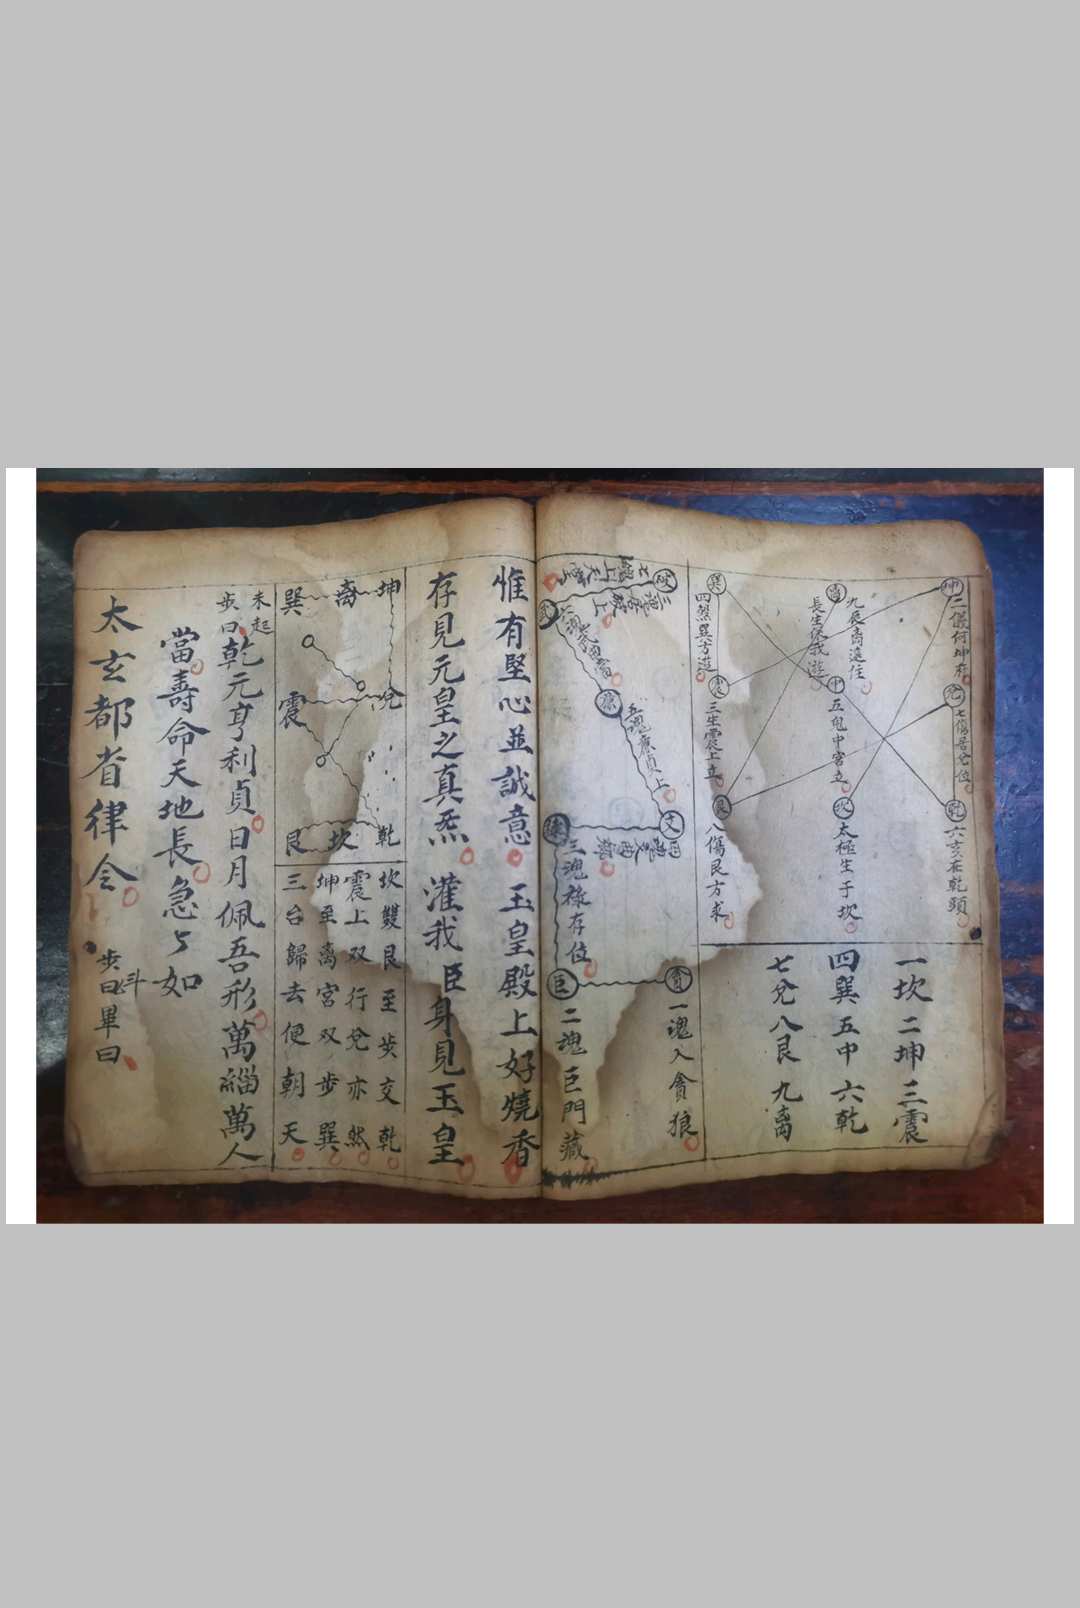 二儀何坤存
坤
兌
七傷居兌位
乾
六亥在乾頭
九辰离遠住
長生保我遊
中
五鬼中宮立
坎
太極生于坎
巽
四然巽方遊
震
三生震上立
艮
八傷艮方求
一坎二坤三震
四巽五中六乾
七兌八艮九离
破
武
六魂
廉
五魂廉貞上
文
祿
三魂祿存位
巨
二魂巨門藏
貪
一魂入貪狼
惟有堅心並誠意 玉皇殿上好燒香
存見元皇之真炁 灌我臣身見玉皇
坤 离 巽
兌 震
乾 坎 艮
坎雙艮至步交乾
震上双行兌亦然
坤至离宮双步巽
三台歸去便朝天
未起
步曰
乾元亨利貞日月佩吾形萬緇萬人
當壽命天地長急々如
太玄都省律令
步斗畢曰